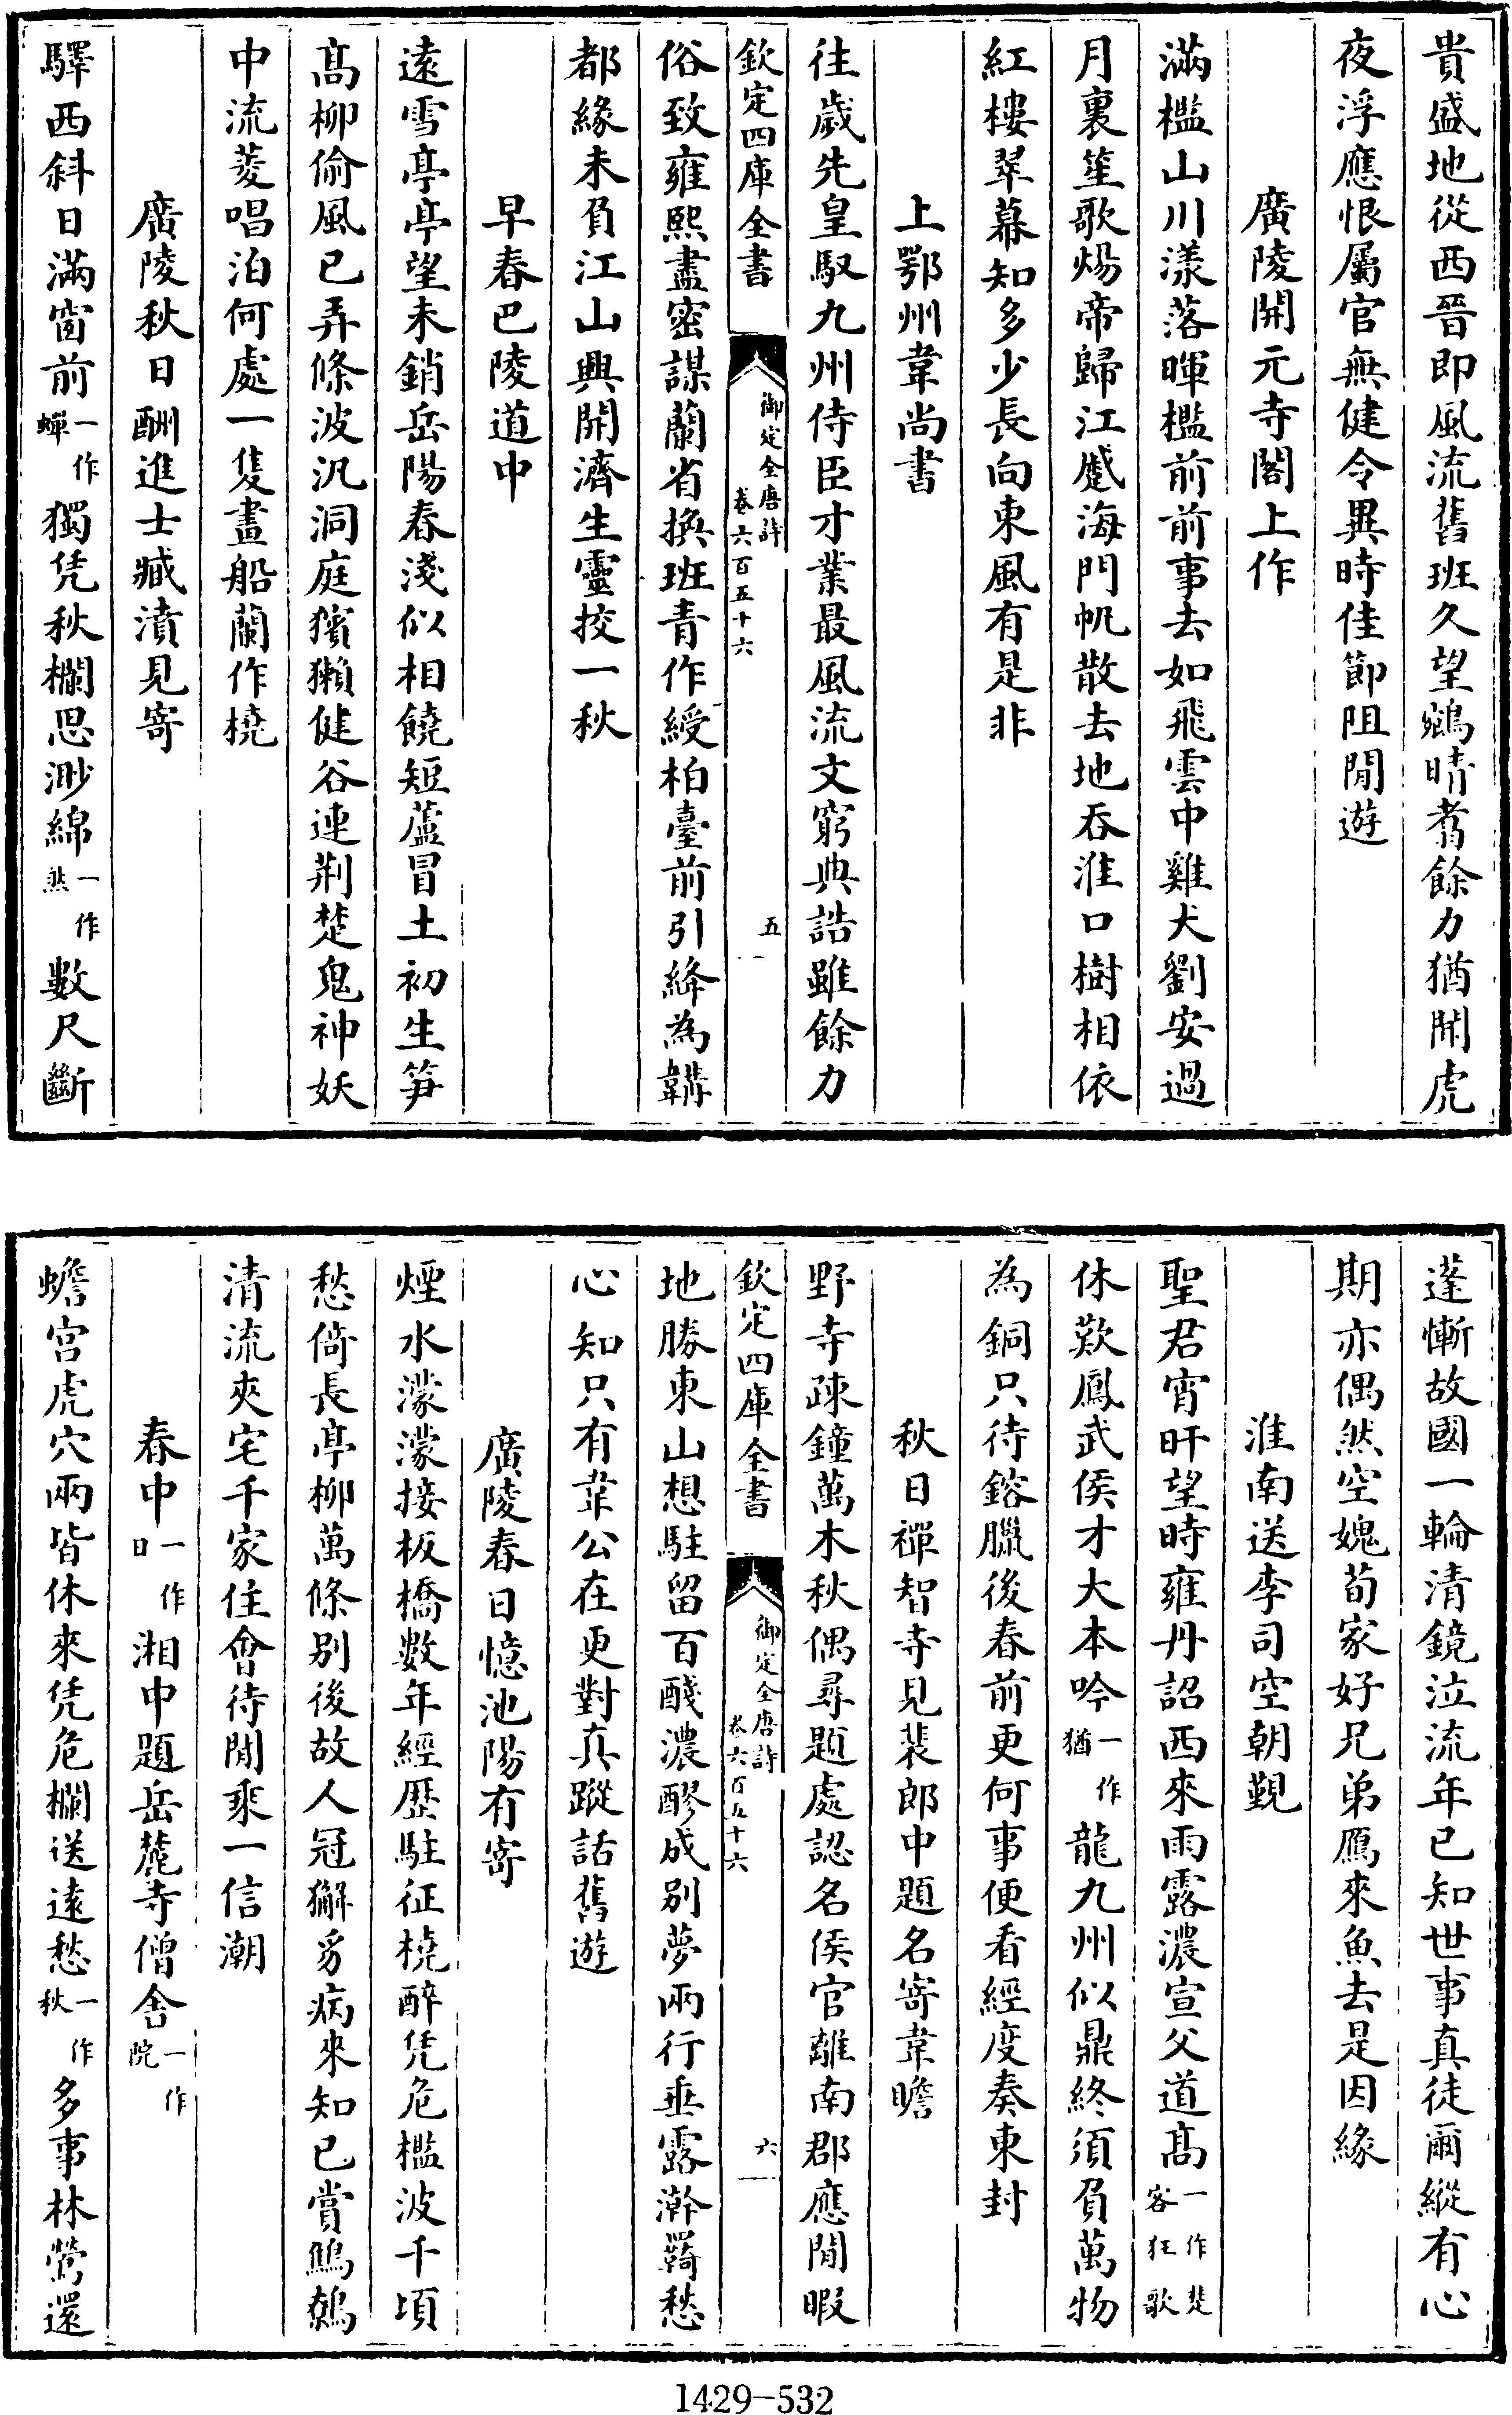 貴盛地從西晉即風流舊班久望鵷晴翥餘力猶閒虎
夜浮應恨屬官無健令異時佳節阻閒遊
廣陵開元寺閣上作
滿檻山川漾落暉檻前前事去如飛雲中雞犬劉安過
月裏笙歌煬帝歸江蹙海門帆散去地吞淮口樹相依
紅樓翠幕知多少長向東風有是非
上鄂州韋尚書
往歲先皇馭九州侍臣才業最風流文窮典誥雖餘力
欽定四庫全書
御定全唐詩
卷六百五十六
五
俗致雍熙盡密謀蘭省換班青作綬柏臺前引絳為韝
都緣未負江山興開濟生靈挍一秋
早春巴陵道中
遠雪亭亭望未銷岳陽春淺似相饒短蘆冒土初生筍
髙柳偷風已弄條波汎洞庭獱獺健谷連荆楚鬼神妖
中流菱唱泊何處一隻畫船蘭作橈
廣陵秋日酬進士臧濆見寄
驛西斜日滿窗前一作蟬獨凭秋欄思渺綿一作然數尺斷
蓬慚故國一輪清鏡泣流年已知世事真徒爾縱有心
期亦偶然空媿荀家好兄弟鴈來魚去是因緣
淮南送李司空朝覲
聖君宵旰望時雍丹詔西來雨露濃宣父道髙一作楚客狂歌
休歎鳳武侯才大本吟一作猶龍九州似鼎終須負萬物
為銅只待鎔臘後春前更何事便看經度奏東封
秋日禪智寺見裴郎中題名寄韋瞻
野寺疎鐘萬木秋偶尋題處認名侯官離南郡應閒暇
欽定四庫全書
御定全唐詩
卷六百五十六
六
地勝東山想駐留百醆濃醪成别夢兩行垂露澣羇愁
心知只有韋公在更對真蹤話舊遊
廣陵春日憶池陽有寄
煙水濛濛接板橋數年經歷駐征橈醉凭危檻波千頃
愁倚長亭柳萬條别後故人冠獬豸病來知已賞鷦鷯
清流夾宅千家住會待閒乘一信潮
春中一作日湘中題岳麓寺僧舍一作院
蟾宮虎穴兩皆休來凭危欄送遠愁一作秋多事林鶯還
1429-532